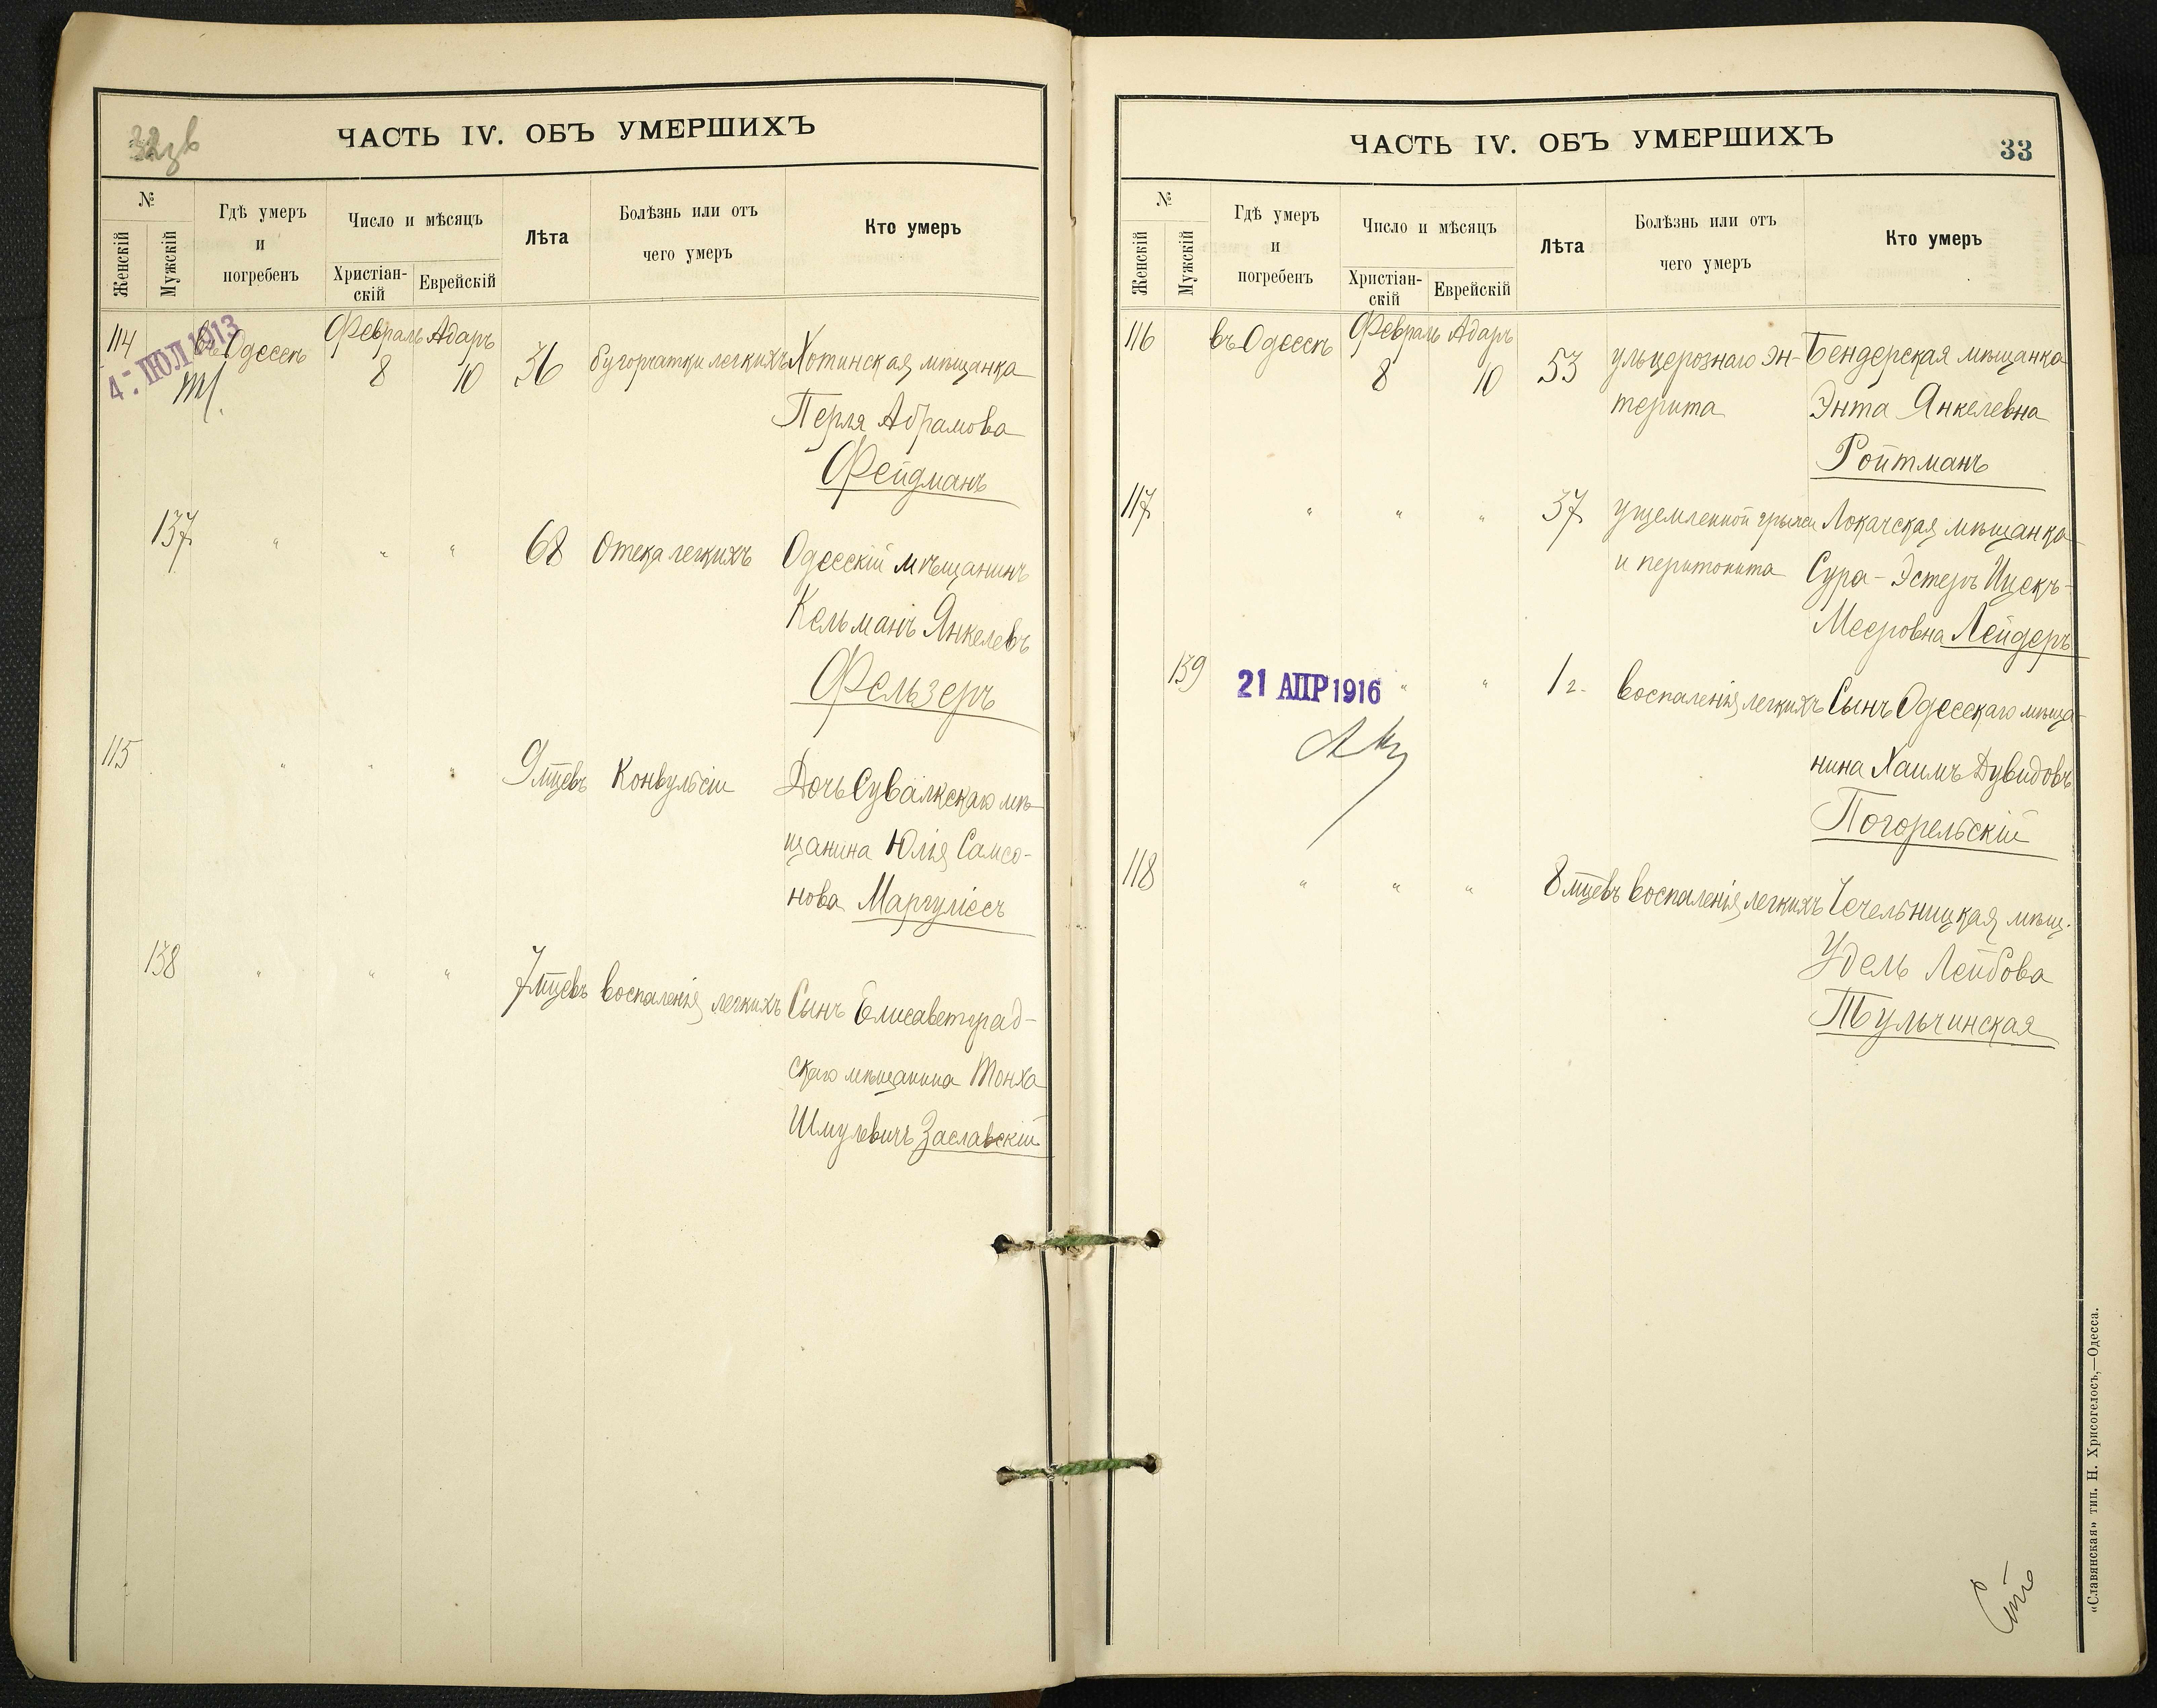 ЧАСТЬ IV. ОБЪ УМЕРШИХЪ
№
Женскій
Мужскій
Гдѣ умеръ
и
погребенъ
Число и мѣсяцъ
Христіан-
скій
Еврейскій
Лѣта
Болѣзнь или отъ
чего умеръ
Кто умеръ
114 въ Одессѣ Февраль Адаръ
4 - ІЮЛ 1913
8 10 36 бугорчатки легкихъ Хотинская мѣщанка
Перля Абрамова
Фейдманъ
137 " " " 68 Отека легкихъ Одесскій мѣщанинъ
Кельманъ Янкелевъ
Фельзеръ
115 " " " 9 мцевъ Конвульсіи Дочь Сувалкскаго мѣ-
щанина Юлія Самсо-
нова Маргуліесъ
138 " " " 7 мцевъ воспаленія легкихъ Сынъ Елисаветград-
скаго мѣщанина Монха
Шмулевичъ Заславскій
ЧАСТЬ IV. ОБЪ УМЕРШИХЪ
33
№
Женскій
Мужскій
Гдѣ умеръ
и
погребенъ
Число и мѣсяцъ
Христіан-
скій
Еврейскій
Лѣта
Болѣзнь или отъ
чего умеръ
Кто умеръ
116 въ Одессѣ Февраль Адаръ
8 10 53 ульцерознаго эн- Бендерская мѣщанка
терита Энта Янкелевна
Ройтманъ
117 " " " 37 ущемленной грыжи Локачская мѣщанка
и перитонита Сура-Эстеръ Ицекъ-
Мееровна Лейдеръ
139 21 АПР 1916 " " 1 г. воспаленія легкихъ Сынъ Одесскаго мѣща-
нина Хаимъ Дувидовъ
Погорельскій
118 " " " 8 мцевъ воспаленія легкихъ Чечельницкая мѣщ.
Удель Лейбова
Тульчинская
«Славянская» тип. Н. Хрисогелосъ,—Одесса.